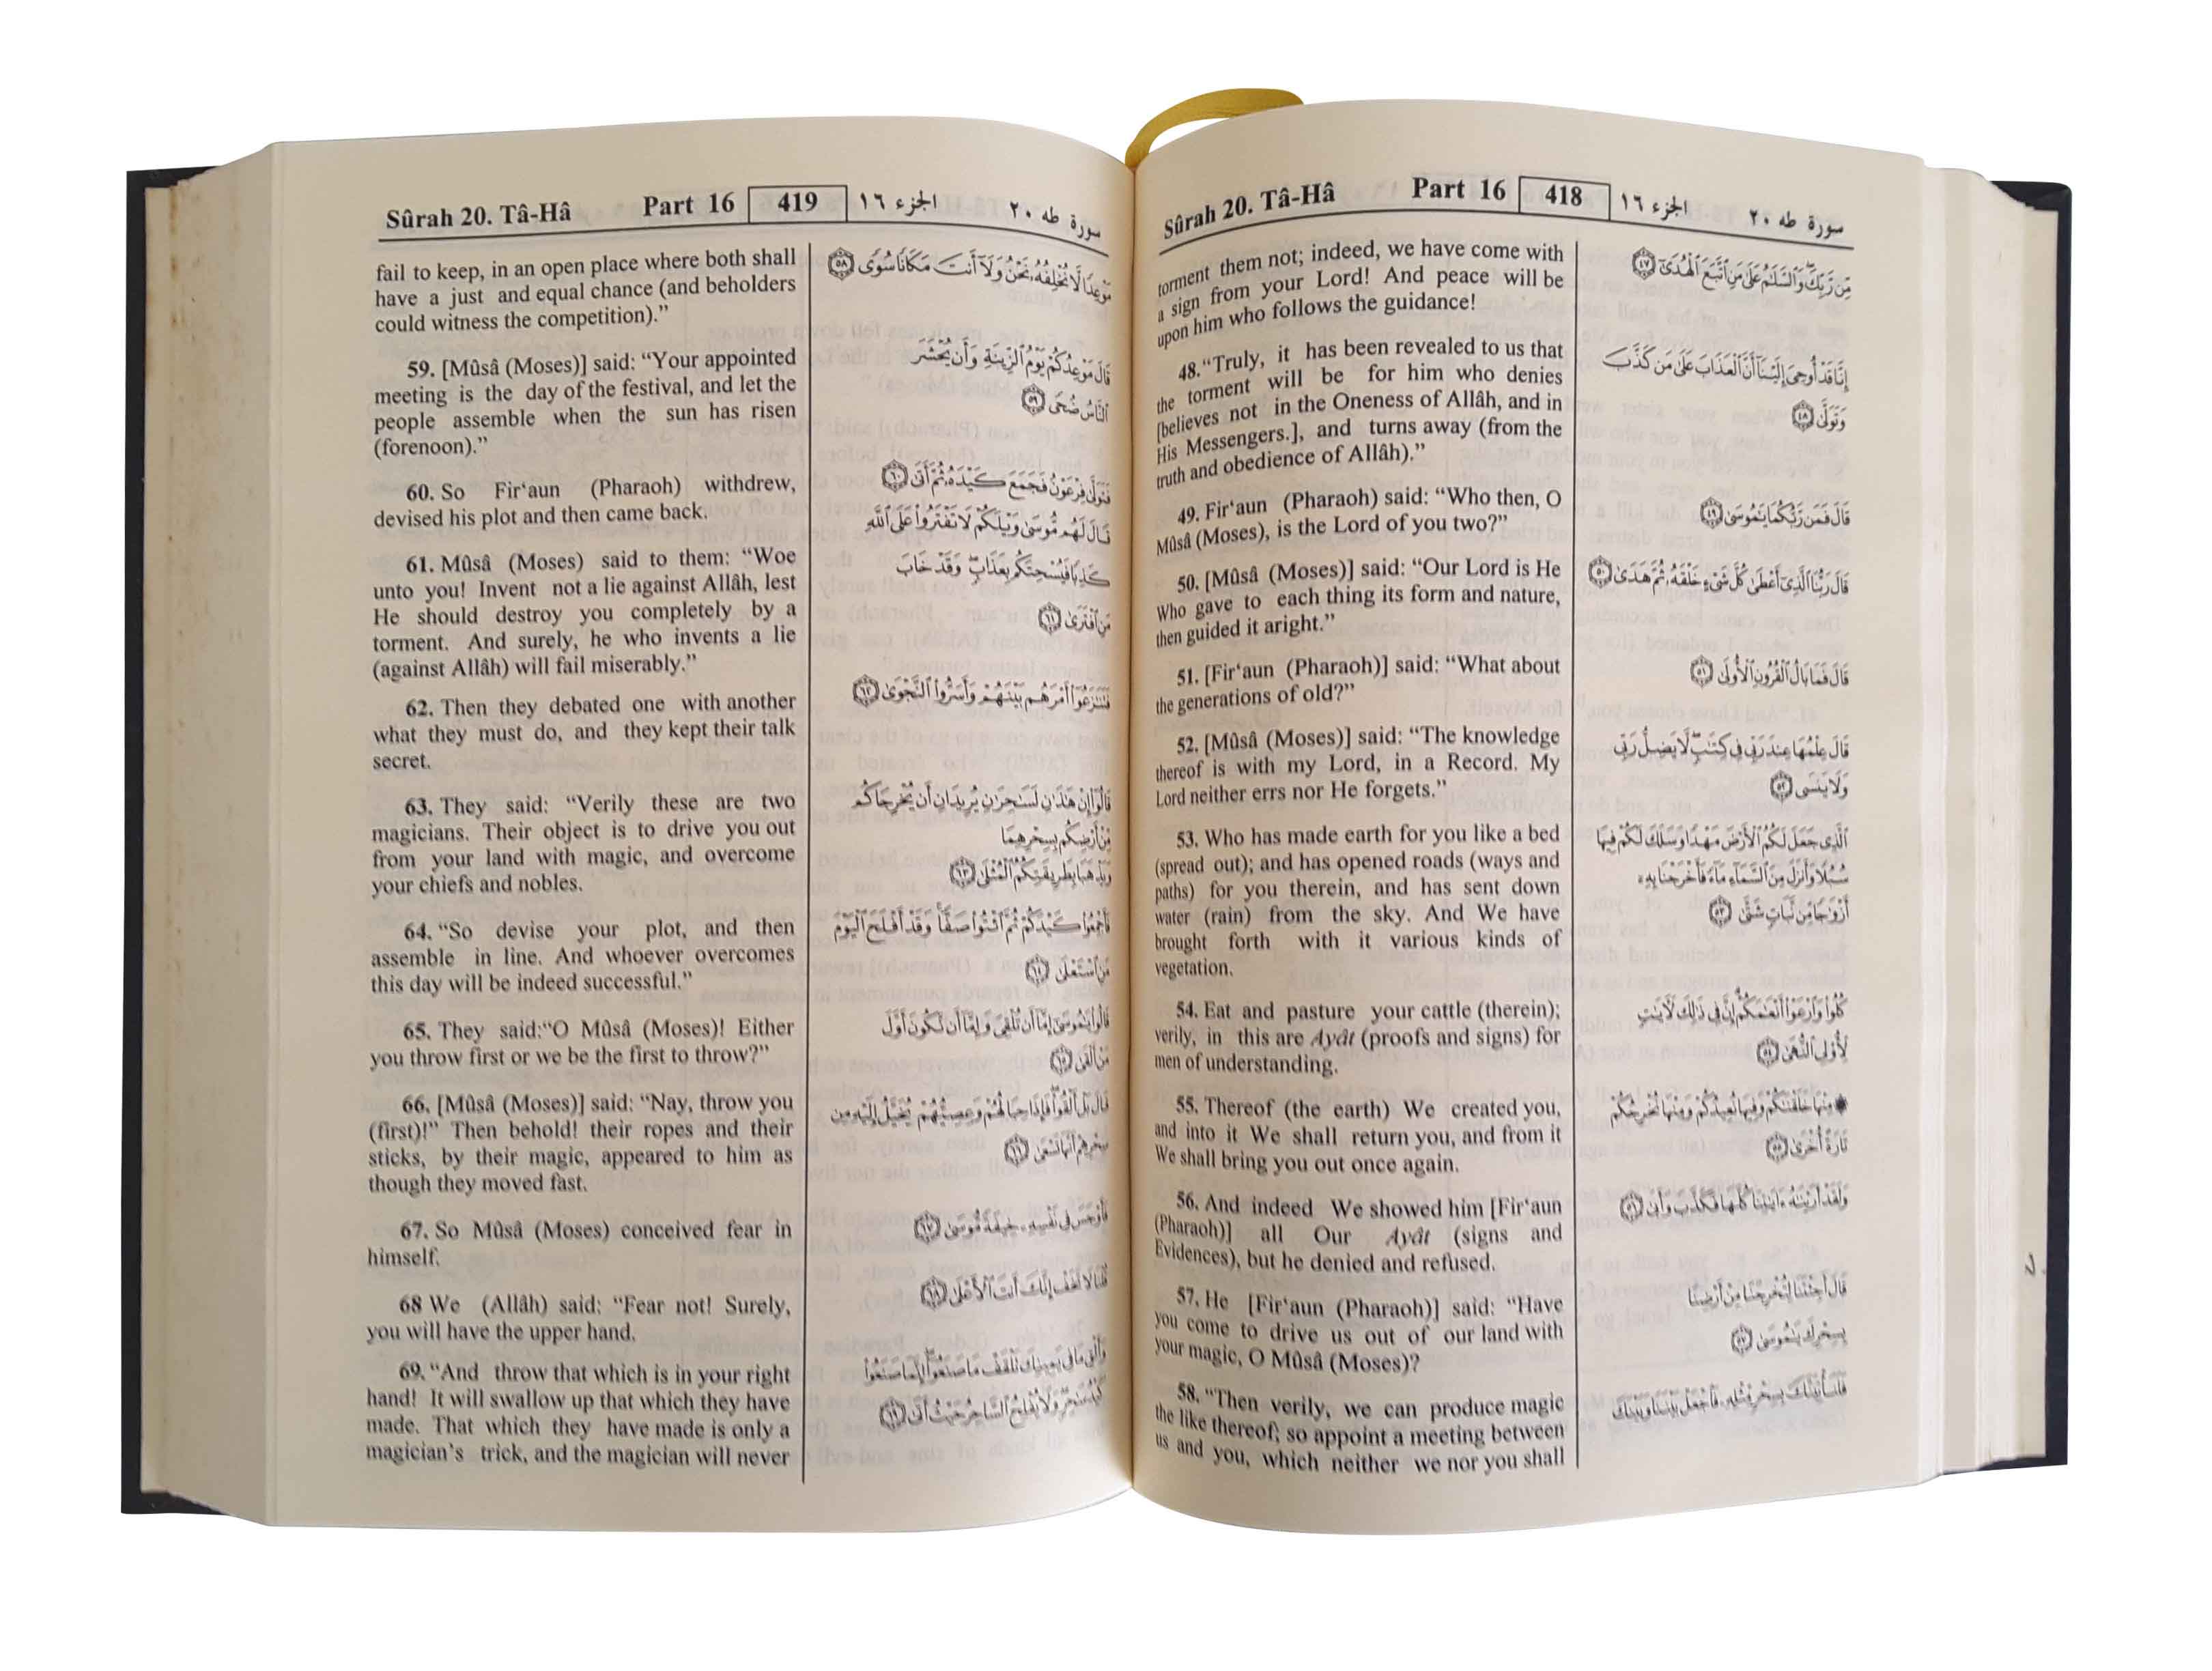 Sûrah 20. Tâ-Hâ Part 16 418 الجزء ١٦ سورة طه ٢٠
torment them not; indeed, we have come with
a sign from your Lord! And peace will be
upon him who follows the guidance!
48. “Truly, it has been revealed to us that
the torment will be for him who denies
[believes not in the Oneness of Allâh, and in
His Messengers.], and turns away (from the
truth and obedience of Allâh).”
49. Fir‘aun (Pharaoh) said: “Who then, O
Mûsâ (Moses), is the Lord of you two?”
50. [Mûsâ (Moses)] said: “Our Lord is He
Who gave to each thing its form and nature,
then guided it aright.”
51. [Fir‘aun (Pharaoh)] said: “What about
the generations of old?”
52. [Mûsâ (Moses)] said: “The knowledge
thereof is with my Lord, in a Record. My
Lord neither errs nor He forgets.”
53. Who has made earth for you like a bed
(spread out); and has opened roads (ways and
paths) for you therein, and has sent down
water (rain) from the sky. And We have
brought forth with it various kinds of
vegetation.
54. Eat and pasture your cattle (therein);
verily, in this are Ayât (proofs and signs) for
men of understanding.
55. Thereof (the earth) We created you,
and into it We shall return you, and from it
We shall bring you out once again.
56. And indeed We showed him [Fir‘aun
(Pharaoh)] all Our Ayât (signs and
Evidences), but he denied and refused.
57. He [Fir‘aun (Pharaoh)] said: “Have
you come to drive us out of our land with
your magic, O Mûsâ (Moses)?
58. “Then verily, we can produce magic
the like thereof; so appoint a meeting between
us and you, which neither we nor you shall
مِّن رَّبِّكَ وَالسَّلَٰمُ عَلَىٰ مَنِ اتَّبَعَ الْهُدَىٰٓ ٤٧
إِنَّا قَدْ أُوحِيَ إِلَيْنَآ أَنَّ الْعَذَابَ عَلَىٰ مَن كَذَّبَ
وَتَوَلَّىٰ ٤٨
قَالَ فَمَن رَّبُّكُمَا يَٰمُوسَىٰ ٤٩
قَالَ رَبُّنَا الَّذِىٓ أَعْطَىٰ كُلَّ شَىْءٍ خَلْقَهُۥ ثُمَّ هَدَىٰ ٥٠
قَالَ فَمَا بَالُ الْقُرُونِ الْأُولَىٰ ٥١
قَالَ عِلْمُهَا عِندَ رَبِّى فِى كِتَٰبٍ لَّا يَضِلُّ رَبِّى
وَلَا يَنسَى ٥٢
الَّذِى جَعَلَ لَكُمُ الْأَرْضَ مَهْدًا وَسَلَكَ لَكُمْ فِيهَا
سُبُلًا وَأَنزَلَ مِنَ السَّمَآءِ مَآءً فَأَخْرَجْنَا بِهِۦٓ
أَزْوَٰجًا مِّن نَّبَاتٍ شَتَّىٰ ٥٣
كُلُوا وَارْعَوْا أَنْعَٰمَكُمْ إِنَّ فِى ذَٰلِكَ لَآيَٰتٍ
لِّأُولِى النُّهَىٰ ٥٤
مِنْهَا خَلَقْنَٰكُمْ وَفِيهَا نُعِيدُكُمْ وَمِنْهَا نُخْرِجُكُمْ
تَارَةً أُخْرَىٰ ٥٥
وَلَقَدْ أَرَيْنَٰهُ ءَايَٰتِنَا كُلَّهَا فَكَذَّبَ وَأَبَىٰ ٥٦
قَالَ أَجِئْتَنَا لِتُخْرِجَنَا مِنْ أَرْضِنَا
بِسِحْرِكَ يَٰمُوسَىٰ ٥٧
فَلَنَأْتِيَنَّكَ بِسِحْرٍ مِّثْلِهِۦ فَاجْعَلْ بَيْنَنَا وَبَيْنَكَ
Sûrah 20. Tâ-Hâ Part 16 419 الجزء ١٦ سورة طه ٢٠
fail to keep, in an open place where both shall
have a just and equal chance (and beholders
could witness the competition).”
59. [Mûsâ (Moses)] said: “Your appointed
meeting is the day of the festival, and let the
people assemble when the sun has risen
(forenoon).”
60. So Fir‘aun (Pharaoh) withdrew,
devised his plot and then came back.
61. Mûsâ (Moses) said to them: “Woe
unto you! Invent not a lie against Allâh, lest
He should destroy you completely by a
torment. And surely, he who invents a lie
(against Allâh) will fail miserably.”
62. Then they debated one with another
what they must do, and they kept their talk
secret.
63. They said: “Verily these are two
magicians. Their object is to drive you out
from your land with magic, and overcome
your chiefs and nobles.
64. “So devise your plot, and then
assemble in line. And whoever overcomes
this day will be indeed successful.”
65. They said:“O Mûsâ (Moses)! Either
you throw first or we be the first to throw?”
66. [Mûsâ (Moses)] said: “Nay, throw you
(first)!” Then behold! their ropes and their
sticks, by their magic, appeared to him as
though they moved fast.
67. So Mûsâ (Moses) conceived fear in
himself.
68 We (Allâh) said: “Fear not! Surely,
you will have the upper hand.
69. “And throw that which is in your right
hand! It will swallow up that which they have
made. That which they have made is only a
magician’s trick, and the magician will never
مَوْعِدًا لَّا نُخْلِفُهُۥ نَحْنُ وَلَآ أَنتَ مَكَانًا سُوًى ٥٨
قَالَ مَوْعِدُكُمْ يَوْمُ الزِّينَةِ وَأَن يُحْشَرَ
النَّاسُ ضُحًى ٥٩
فَتَوَلَّىٰ فِرْعَوْنُ فَجَمَعَ كَيْدَهُۥ ثُمَّ أَتَىٰ ٦٠
قَالَ لَهُم مُّوسَىٰ وَيْلَكُمْ لَا تَفْتَرُوا عَلَى اللَّهِ
كَذِبًا فَيُسْحِتَكُم بِعَذَابٍ وَقَدْ خَابَ
مَنِ افْتَرَىٰ ٦١
فَتَنَٰزَعُوٓا أَمْرَهُم بَيْنَهُمْ وَأَسَرُّوا النَّجْوَىٰ ٦٢
قَالُوٓا إِنْ هَٰذَٰنِ لَسَٰحِرَٰنِ يُرِيدَانِ أَن يُخْرِجَاكُم
مِّنْ أَرْضِكُم بِسِحْرِهِمَا
وَيَذْهَبَا بِطَرِيقَتِكُمُ الْمُثْلَىٰ ٦٣
فَأَجْمِعُوا كَيْدَكُمْ ثُمَّ ائْتُوا صَفًّا وَقَدْ أَفْلَحَ الْيَوْمَ
مَنِ اسْتَعْلَىٰ ٦٤
قَالُوا يَٰمُوسَىٰٓ إِمَّآ أَن تُلْقِىَ وَإِمَّآ أَن نَّكُونَ أَوَّلَ
مَنْ أَلْقَىٰ ٦٥
قَالَ بَلْ أَلْقُوا فَإِذَا حِبَالُهُمْ وَعِصِيُّهُمْ يُخَيَّلُ إِلَيْهِ مِن
سِحْرِهِمْ أَنَّهَا تَسْعَىٰ ٦٦
فَأَوْجَسَ فِى نَفْسِهِۦ خِيفَةً مُّوسَىٰ ٦٧
قُلْنَا لَا تَخَفْ إِنَّكَ أَنتَ الْأَعْلَىٰ ٦٨
وَأَلْقِ مَا فِى يَمِينِكَ تَلْقَفْ مَا صَنَعُوٓا إِنَّمَا صَنَعُوا
كَيْدُ سَٰحِرٍ وَلَا يُفْلِحُ السَّاحِرُ حَيْثُ أَتَىٰ ٦٩